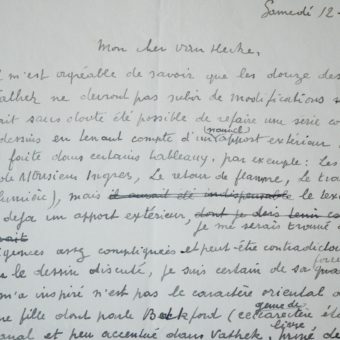 Samedi 12-
Mon cher van Hecke,
m'est agréable de savoir que les douze des
athek ne devront pas subir de modifications
ait sans doute été possible de refaire une série com
dessins en tenant compte d'un apport extérieur
nouvel
faite dans certains tableaux, par exemple : Les
de Monsieur Ingres, Le retour de flamme, Le tra
lumière), mais il aurait été indispensable le tex
déjà un apport extérieur, dont je dois tenir
je me serais trouvé
gences assez compliquées et peut-être contradictoi
le dessin discuté, je suis certain de sa
force
m'a inspiré n'est pas le caractère oriental
ne fille dont parle Beckford (ce caractère
nal et peu accentué dans Vathek,
livre